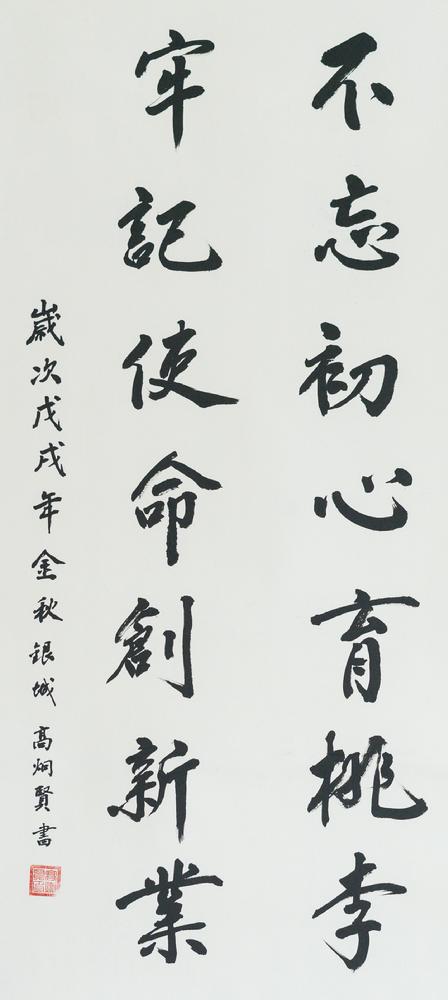 不忘初心育桃李
牢記使命創新業
歲次戊戌年金秋銀城高炯賢書